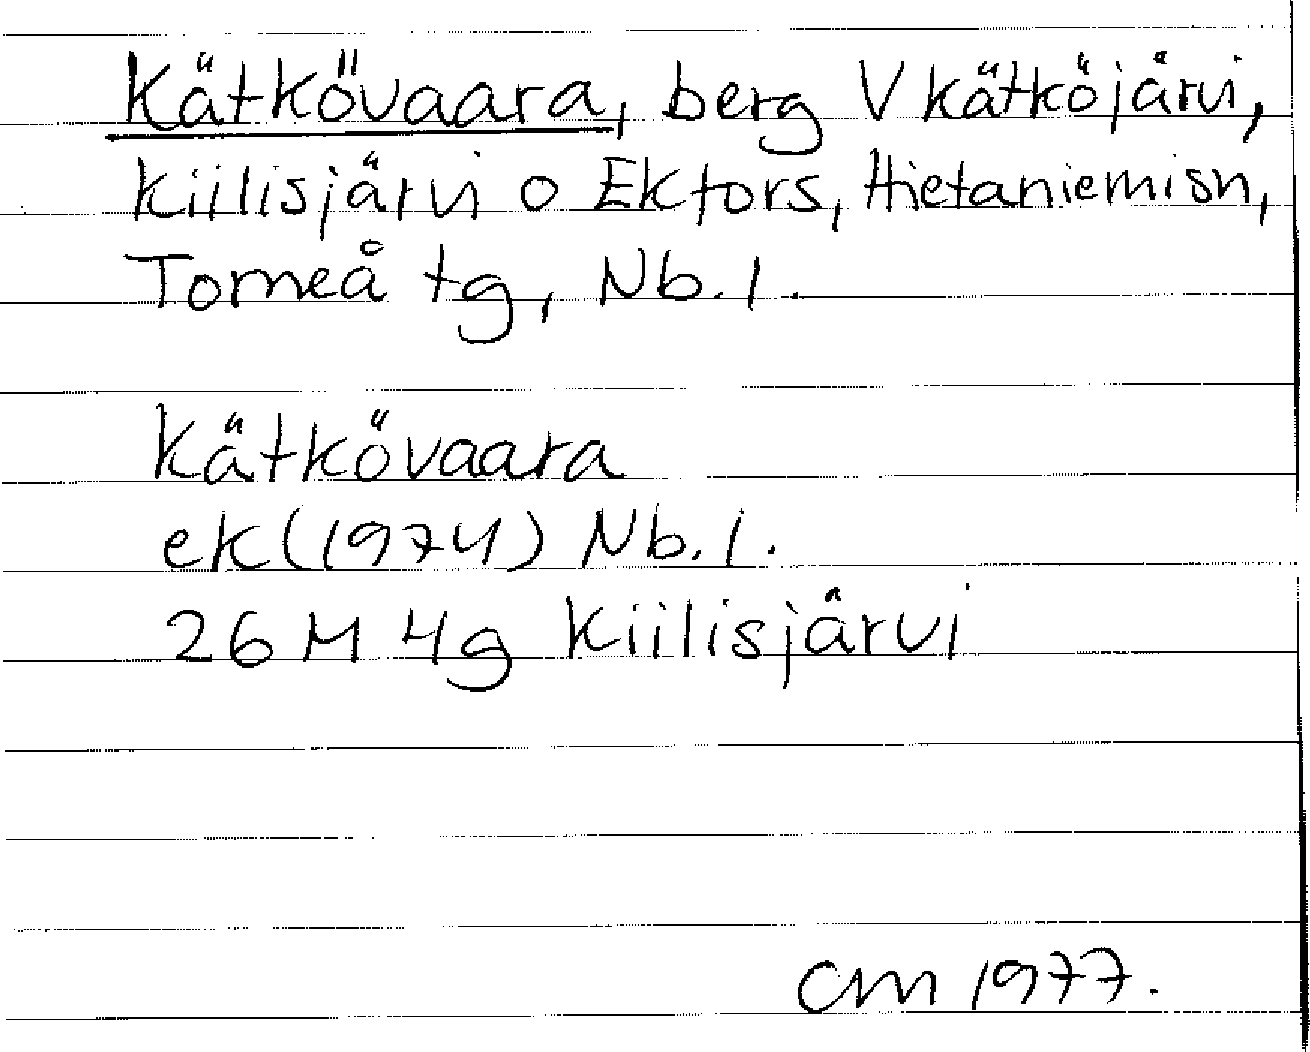 Kätkövaara, berg V Kätköjärvi,
Kiilisjärvi o Ektors, Hietaniemi sn,
Torneå tg, Nb. l.
Kätkövaara
ek (1974) Nb. l.
26 M 4g Kiilisjärvi
CM 1977.